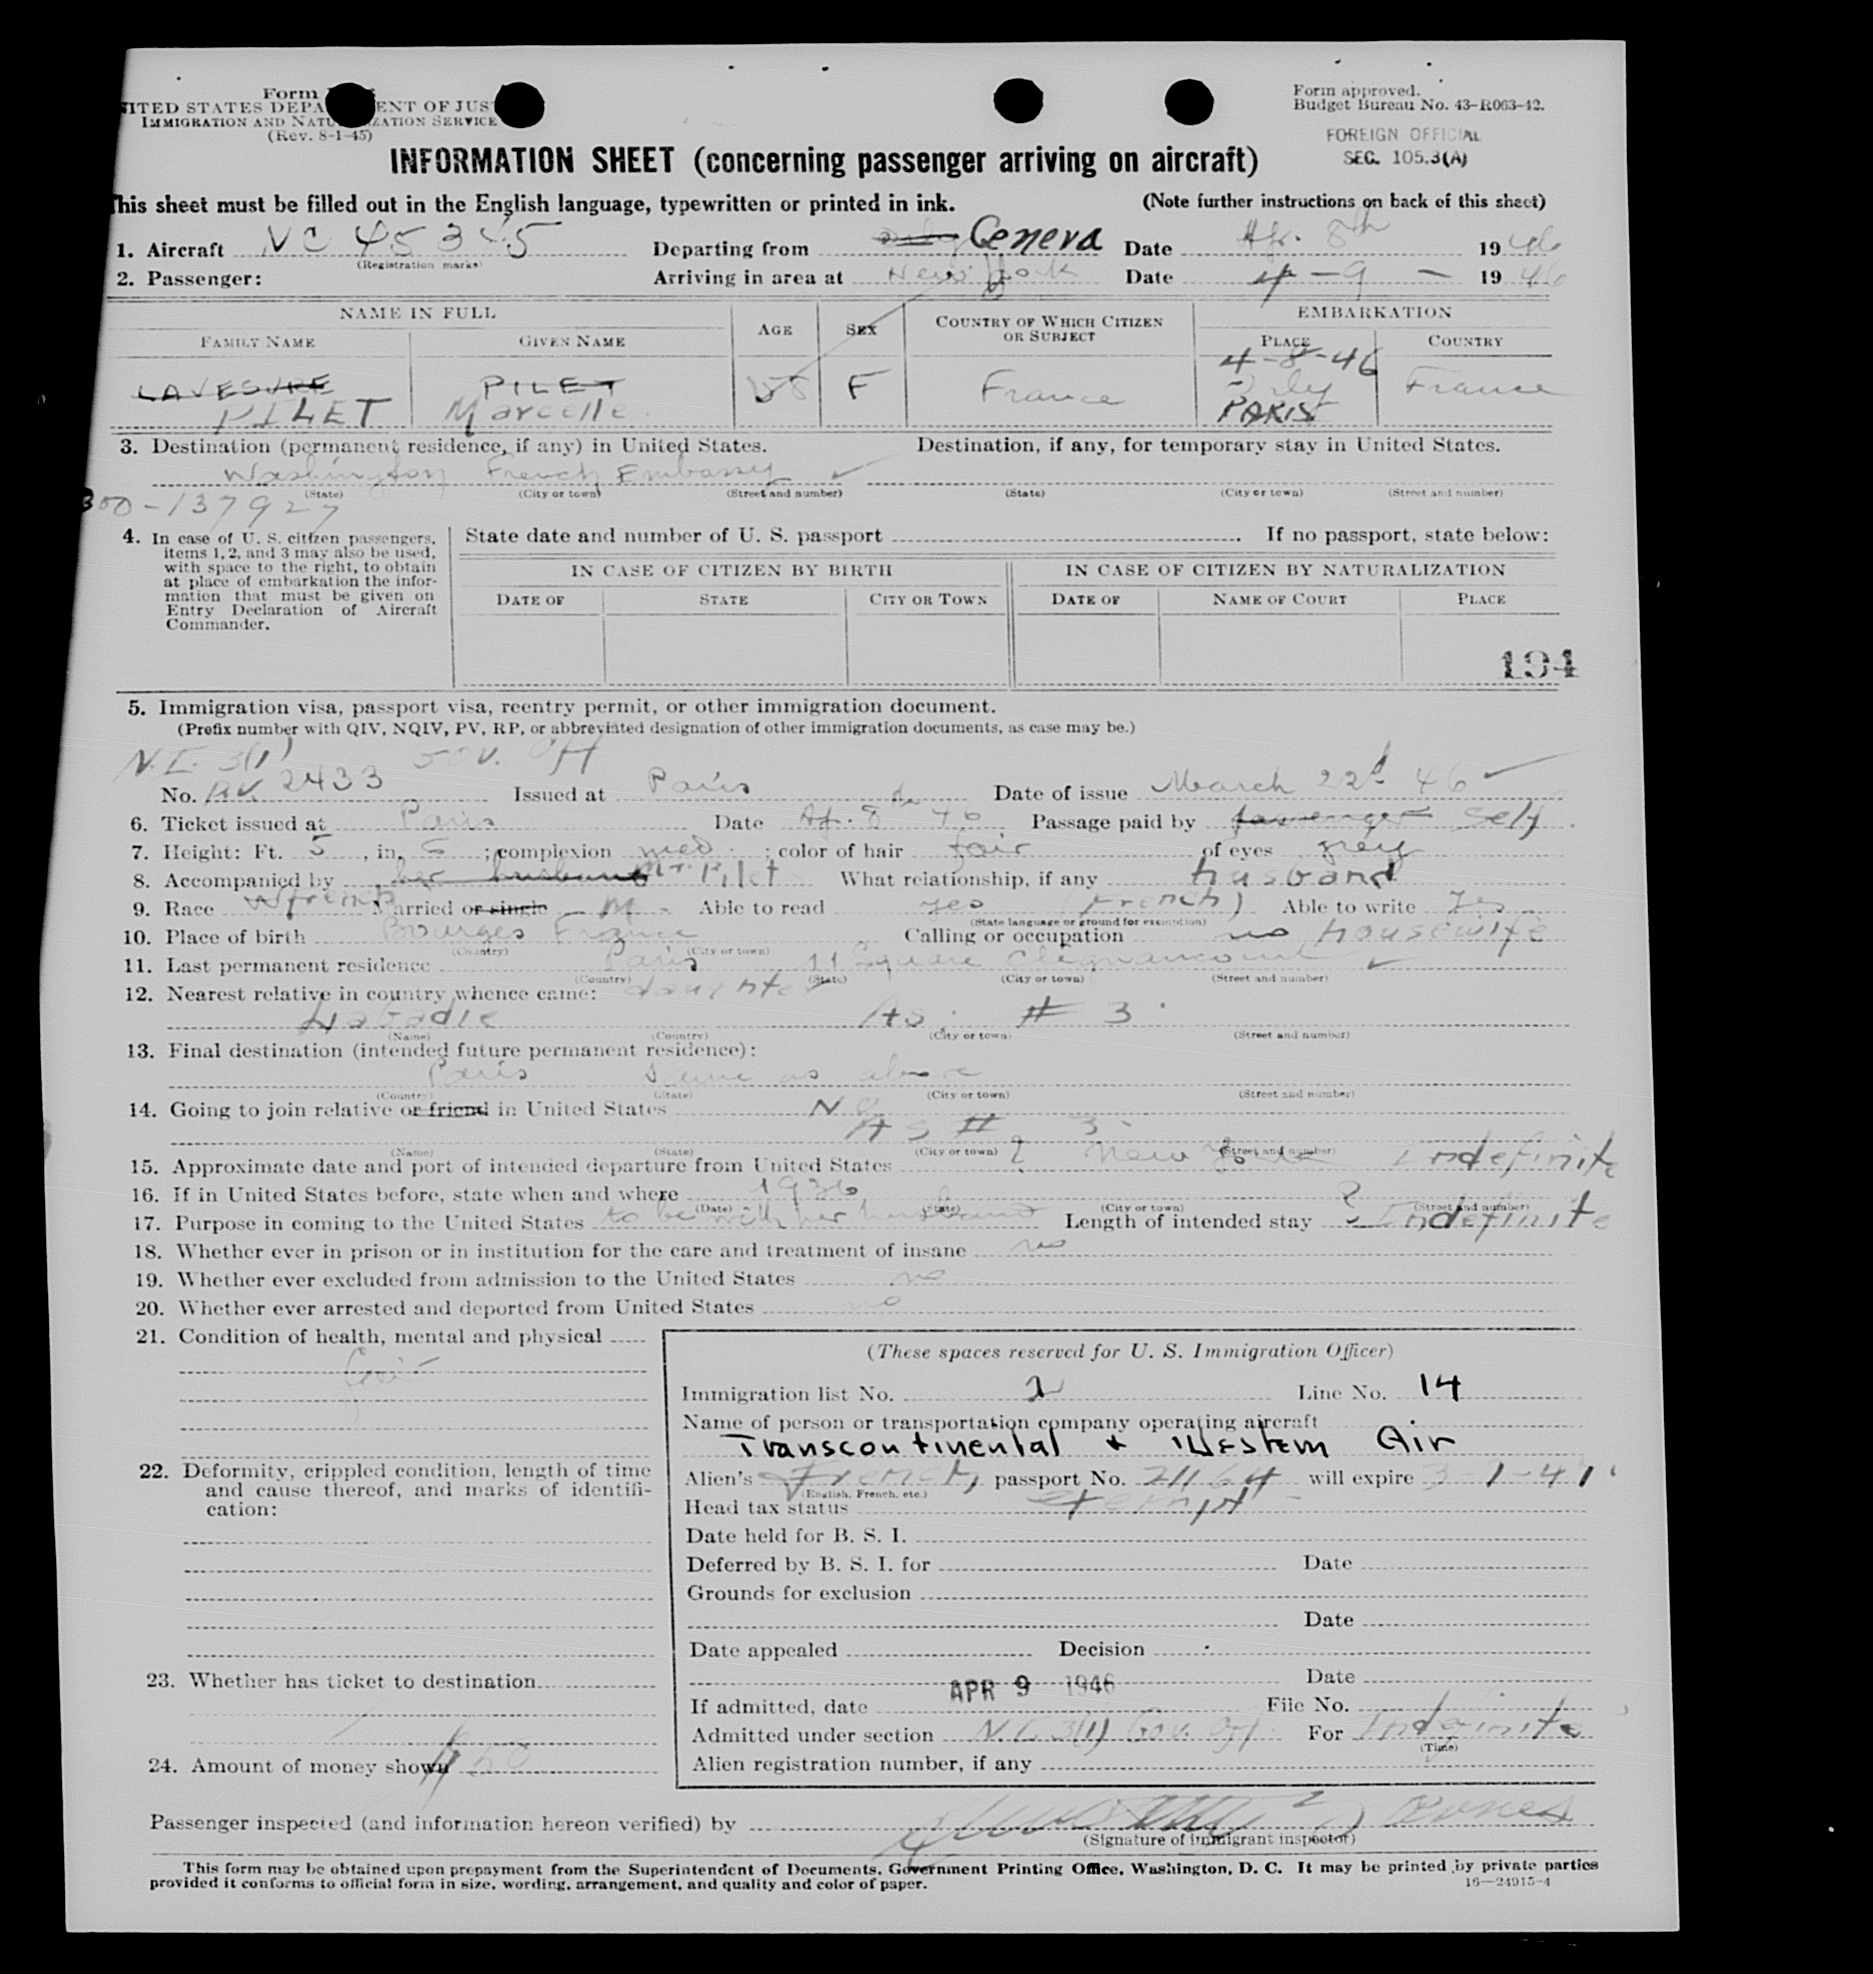 Form
UNITED STATES DEPARTMENT OF JUSTICE
IMMIGRATION AND NATURALIZATION SERVICE
(Rev. 8-1-45)
Form approved.
Budget Bureau No. 43-R063-42.
FOREIGN OFFICIAL
SEC. 105.3(A)
INFORMATION SHEET (concerning passenger arriving on aircraft)
This sheet must be filled out in the English language, typewritten or printed in ink. (Note further instructions on back of this sheet)
1. Aircraft NC 45345 Departing from Geneva Date Ap. 8th 1946
(Registration marks)
2. Passenger: Arriving in area at New York Date 4-9- 1946
NAME IN FULL AGE SEX COUNTRY OF WHICH CITIZEN OR SUBJECT EMBARKATION
FAMILY NAME GIVEN NAME PLACE COUNTRY
4-8-46
LAVESURE PILET 58 F France Orly France
PILET Marcelle PARIS
3. Destination (permanent residence, if any) in United States. Destination, if any, for temporary stay in United States.
Washington French Embassy
(State) (City or town) (Street and number) (State) (City or town) (Street and number)
300-137927
4. In case of U. S. citizen passengers, items 1, 2, and 3 may also be used, with space to the right, to obtain at place of embarkation the information that must be given on Entry Declaration of Aircraft Commander.
State date and number of U. S. passport . If no passport, state below:
IN CASE OF CITIZEN BY BIRTH IN CASE OF CITIZEN BY NATURALIZATION
DATE OF STATE CITY OR TOWN DATE OF NAME OF COURT PLACE
194
5. Immigration visa, passport visa, reentry permit, or other immigration document.
(Prefix number with QIV, NQIV, PV, RP, or abbreviated designation of other immigration documents, as case may be.)
N.I. 3(1) Gov. Off
No. PV 2433 Issued at Paris Date of issue March 22d 46
6. Ticket issued at Paris Date Ap. 8th 46 Passage paid by passenger Self
7. Height: Ft. 5, in. 6; complexion med.; color of hair fair of eyes grey
8. Accompanied by her husband Mr. Pilet What relationship, if any husband
9. Race W French Married or single M Able to read yes (French) Able to write yes
(State language or ground for exemption)
10. Place of birth Bourges France Calling or occupation no housewife
(Country) (City or town)
11. Last permanent residence Paris 11 Square Clignancourt
(Country) (State) (City or town) (Street and number)
12. Nearest relative in country whence came: daughter
Labadie As # 3
(Name) (Country) (City or town) (Street and number)
13. Final destination (intended future permanent residence):
Paris Same as above
(Country) (State) (City or town) (Street and number)
14. Going to join relative or friend in United States No
AS # 3
(Name) (State) (City or town) (Street and number)
15. Approximate date and port of intended departure from United States ? New York Indefinite
16. If in United States before, state when and where 1936
(Date) (State) (City or town) (Street and number)
17. Purpose in coming to the United States to be with her husband Length of intended stay ? Indefinite
18. Whether ever in prison or in institution for the care and treatment of insane no
19. Whether ever excluded from admission to the United States no
20. Whether ever arrested and deported from United States no
21. Condition of health, mental and physical
22. Deformity, crippled condition, length of time and cause thereof, and marks of identification:
23. Whether has ticket to destination
24. Amount of money shown $50
(These spaces reserved for U. S. Immigration Officer)
Immigration list No. 2 Line No. 14
Name of person or transportation company operating aircraft
Transcontinental & Western Air
Alien's French passport No. 21164 will expire 3-7-47
(English, French, etc.)
Head tax status exempt
Date held for B. S. I.
Deferred by B. S. I. for Date
Grounds for exclusion
Date
Date appealed Decision
Date
If admitted, date APR 9 1946 File No.
Admitted under section N.I. 3(1) Gov. Off For Indefinite
(Time)
Alien registration number, if any
Passenger inspected (and information hereon verified) by
(Signature of immigrant inspector)
This form may be obtained upon prepayment from the Superintendent of Documents, Government Printing Office, Washington, D. C. It may be printed by private parties
provided it conforms to official form in size, wording, arrangement, and quality and color of paper. 16—24915-4